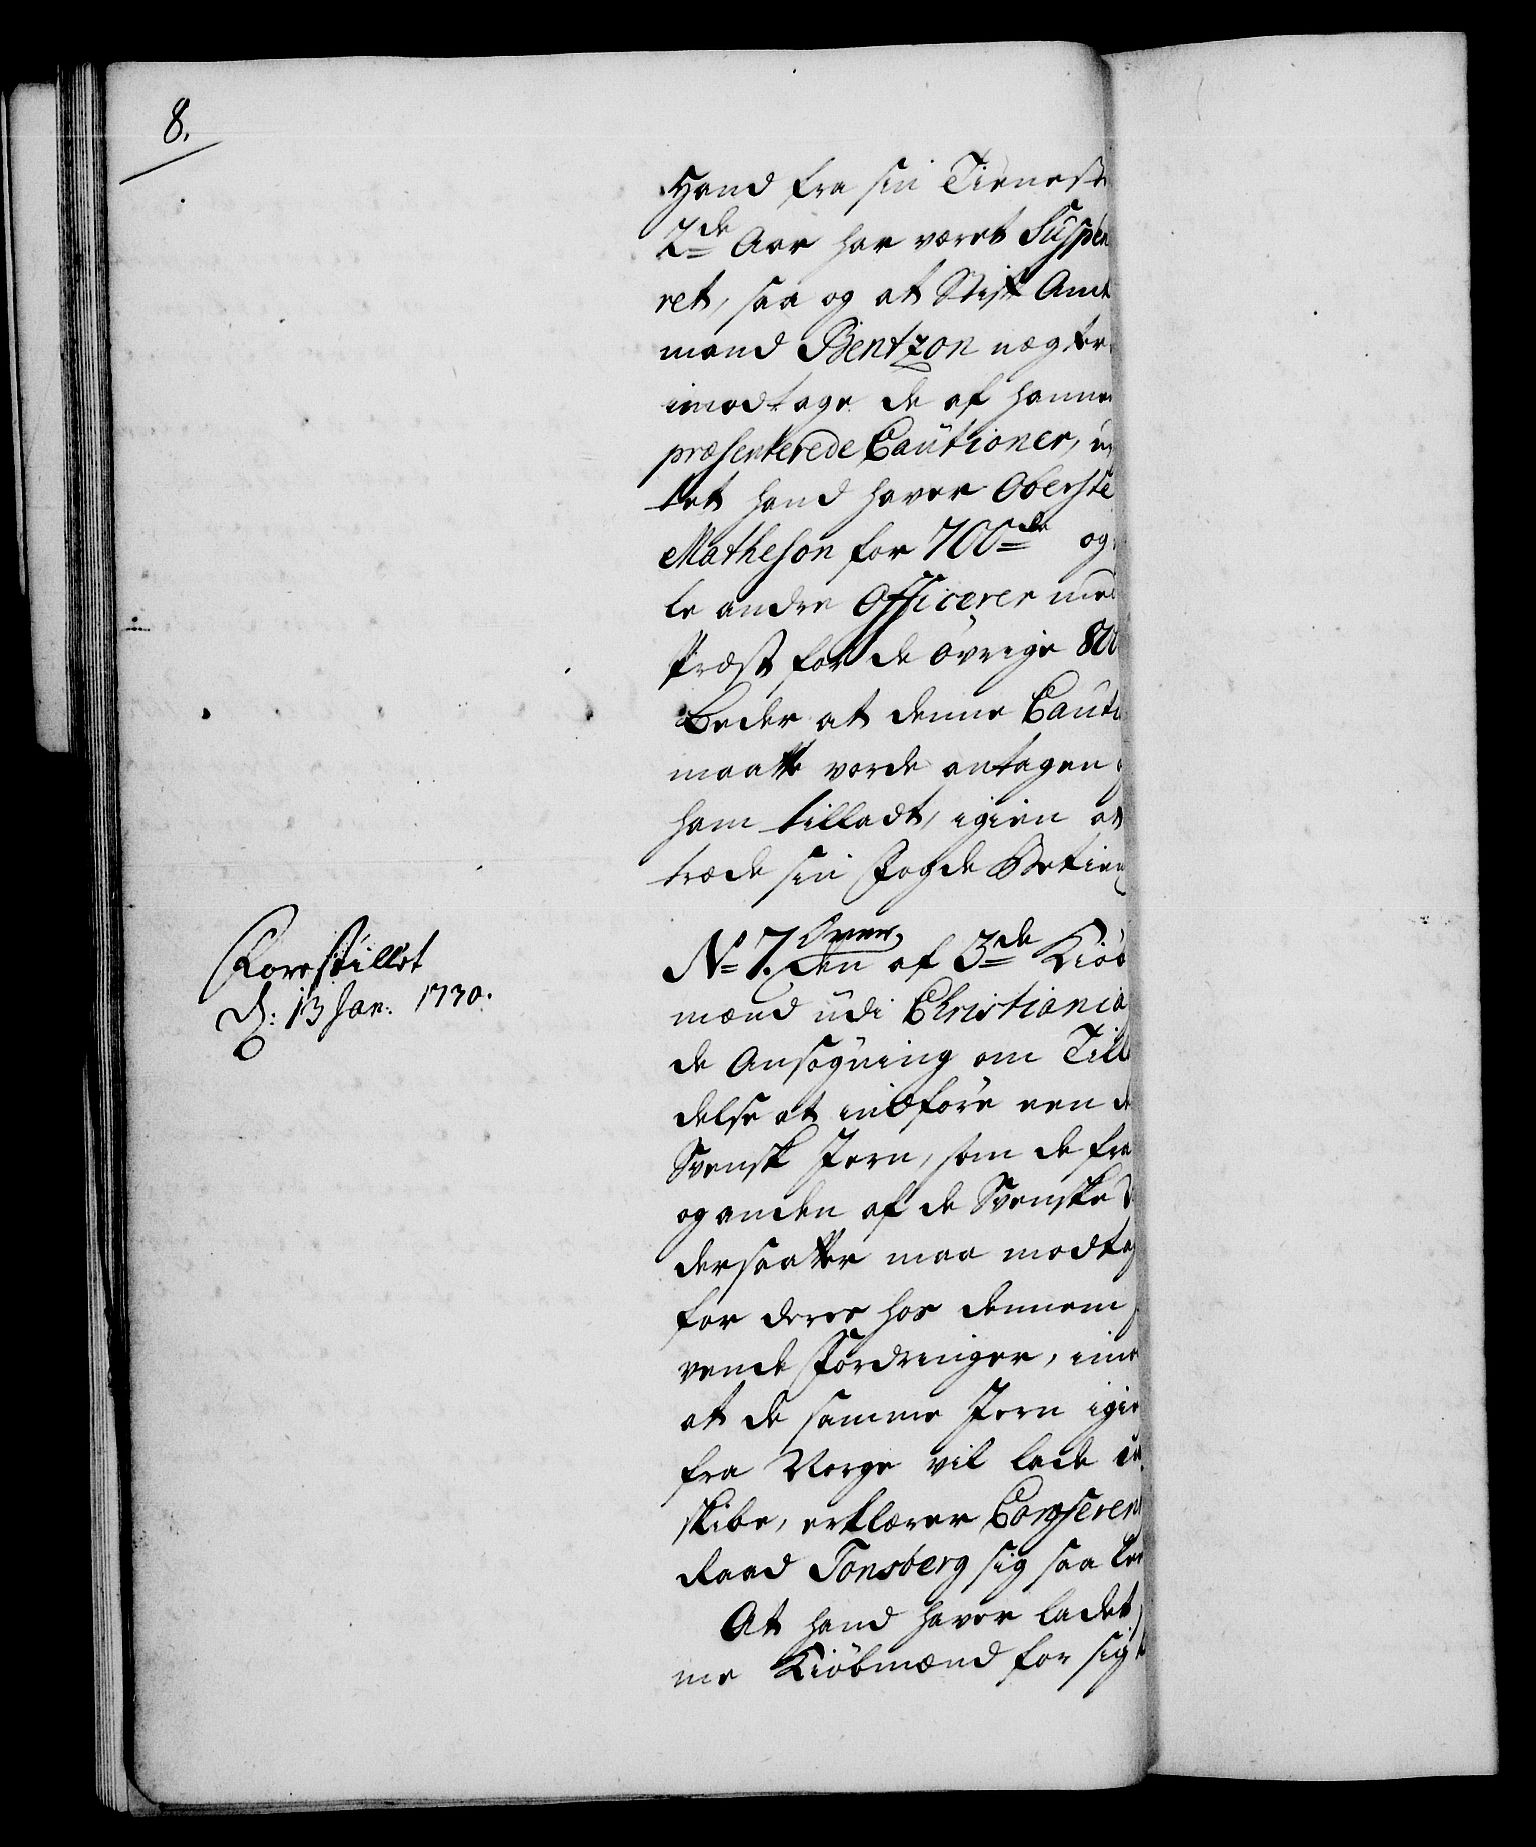 8.
Hand fra sin Tieneste
2de Aar har været Suspen
ret, saa og at Stift Amt
mand Bentzon nægter
imodtage de af hanne
præsenterede Cautioner, u
tet hand haver Oberste
Matheson for 700de og
le andre Officerer med
Præst for de övrige 800
Beder at denne Cauti
maatte vorde antagen
ham tilladt, igien at
træde sin Fogde Betien
Forestillet
d: 13 Jan: 1730.
No 7. Over
den af 3de Kiöb
mænd udi Christiania
de Ansögning om Till
delse at indföre een d
Svensk Jern, som de fra
og anden af de Svenske
dersaatter maa modtag
for deres hos dennem
vende Fordringer, imo
at de samme Jern igie
fra Norge vil lade ud
skibe, erklærer Conferen
Raad Tonsberg sig saa led
At hand haver ladet
me Kiöbmænd for sig